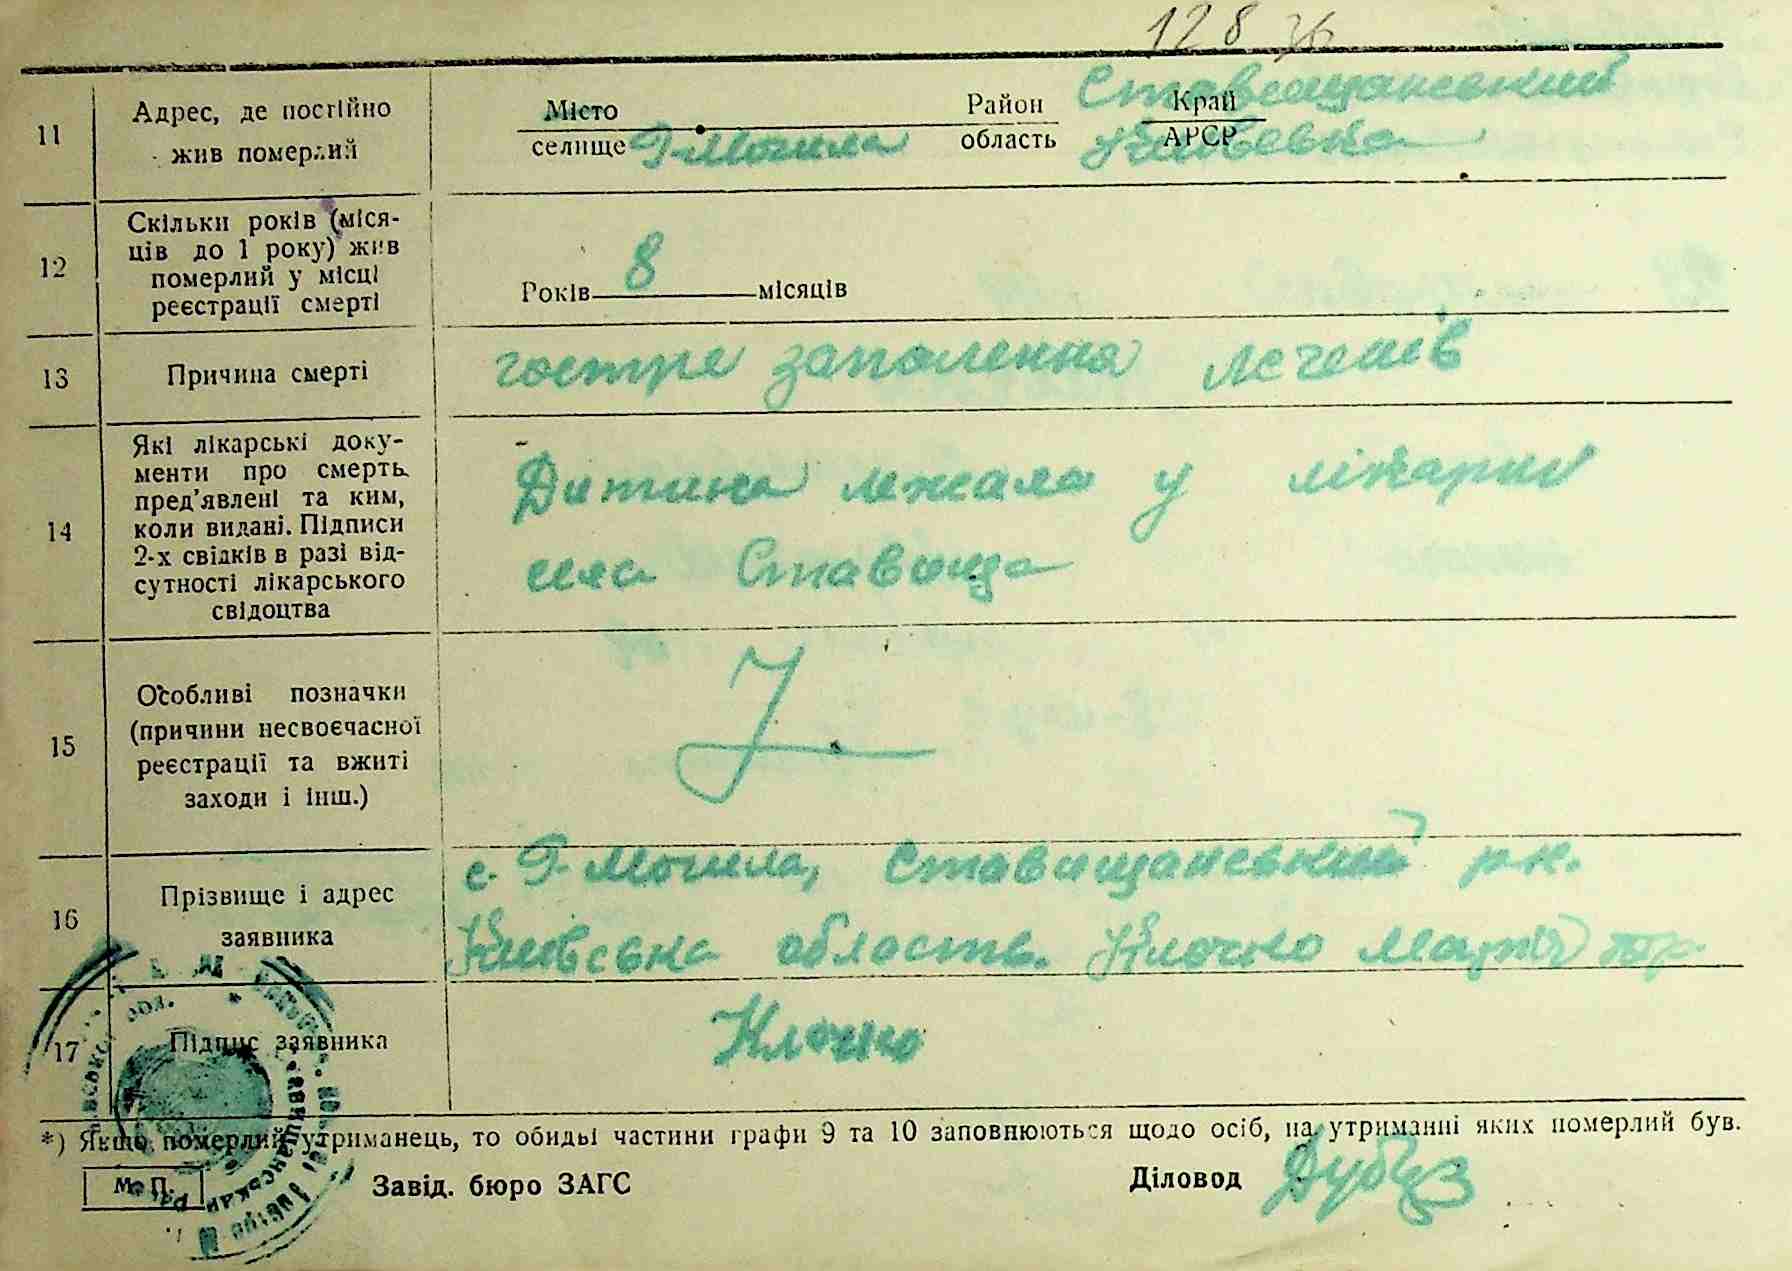 128 36
11
Адрес, де постійно
жив померлий
Місто
селище
Г-Могила
Район
область
Ставищанський
Київська
Край
АРСР
12
Скільки років (міся-
ців до 1 року) жив
померлий у місці
реєстрації смерті
Років 8 місяців
13
Причина смерті
гостре запалення легенів
14
Які лікарські доку-
менти про смерть
пред'явлені та ким,
коли видані. Підписи
2-х свідків в разі від-
сутності лікарського
свідоцтва
Дитина лежала у лікарні
села Ставища
15
Особливі позначки
(причини несвоєчасної
реєстрації та вжиті
заходи і інш.)
16
Прізвище і адрес
заявника
с. Г-Могила, Ставищанський рн.
Київська область. Клочко
17
Підпис заявника
Клочко
*) Якщо померлий утриманець, то обидві частини графи 9 та 10 заповнюються щодо осіб, на утриманні яких померлий був.
М. П.
Завід. бюро ЗАГС
Діловод